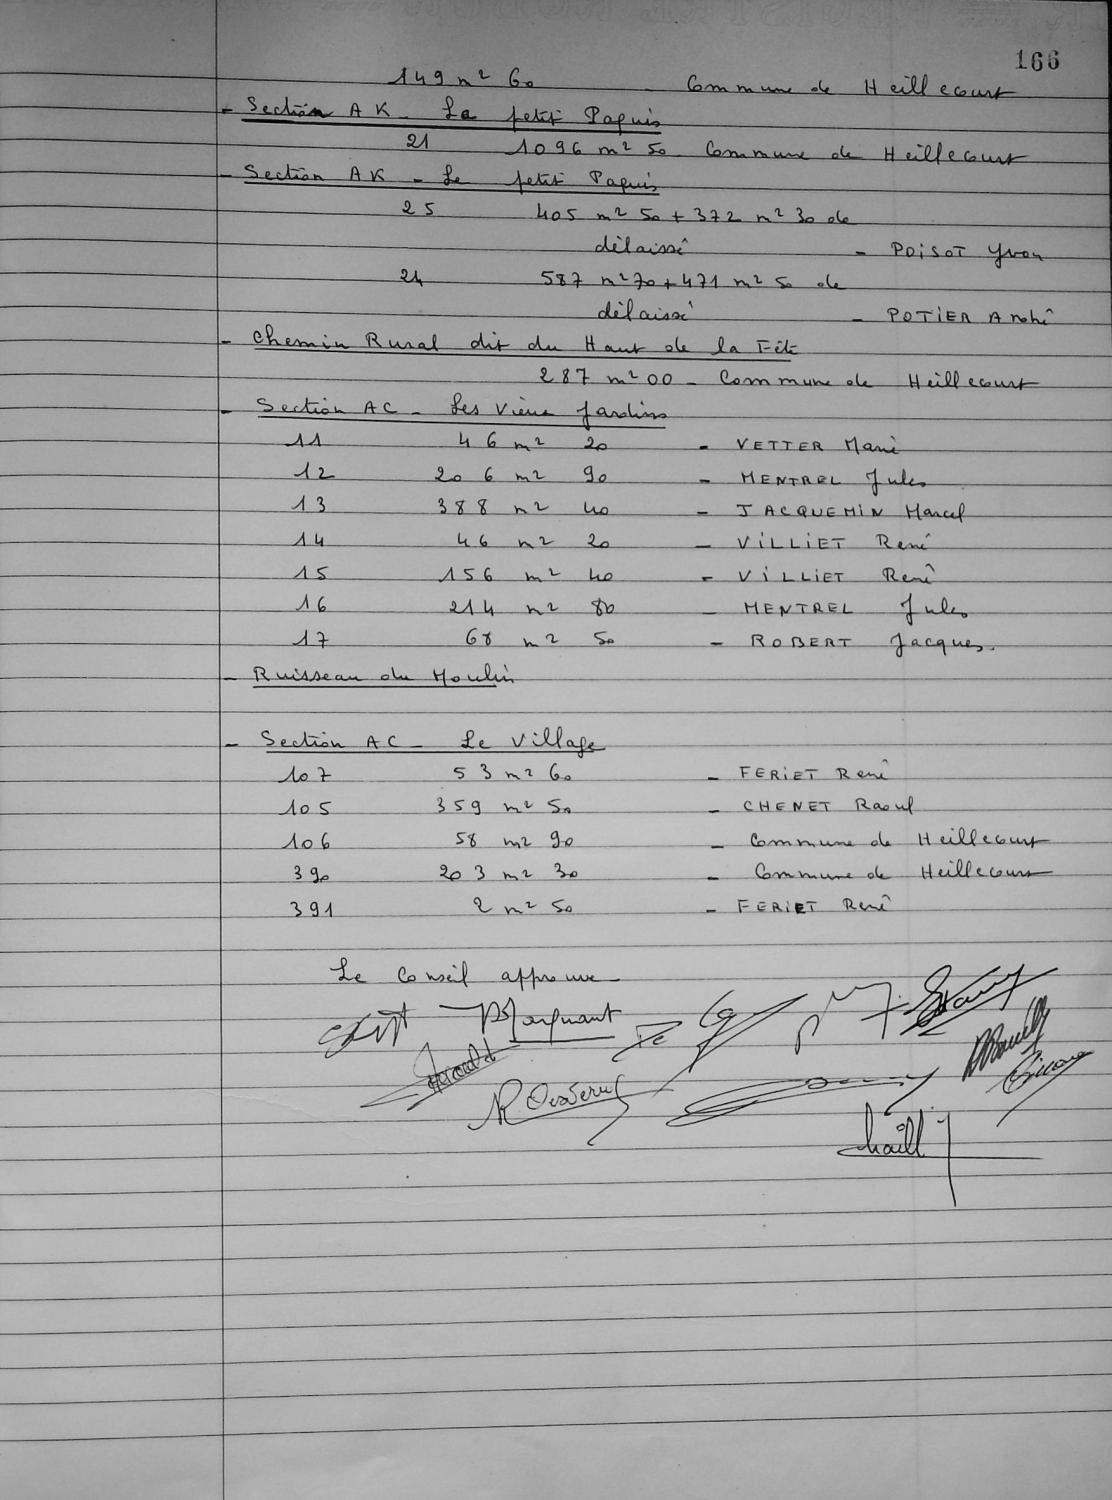 166
149 m² 60 - Commune de Heillecourt
- Section AK - Le petit Paquis
21 1096 m² 50 - Commune de Heillecourt
- Section AK - Le petit Paquis
25 405 m² 50 + 372 m² 30 de
délaissé - POISOT Yvon
24 587 m² 70 + 471 m² 50 de
délaissé - POTIER André
- Chemin Rural dit du Haut de la Fête
287 m² 00 - Commune de Heillecourt
- Section AC - Les Vieux Jardins
11 46 m² 20 - VETTER Marie
12 206 m² 90 - MENTREL Jules
13 388 m² 40 - JACQUEMIN Marcel
14 46 m² 20 - VILLIET René
15 156 m² 40 - VILLIET René
16 214 m² 80 - MENTREL Jules
17 68 m² 50 - ROBERT Jacques.
- Ruisseau du Moulin
- Section AC - Le Village
107 53 m² 60 - FERIET René
105 359 m² 50 - CHENET Raoul
106 58 m² 90 - Commune de Heillecourt
390 203 m² 30 - Commune de Heillecourt
391 2 m² 50 - FERIET René
Le Conseil approuve -